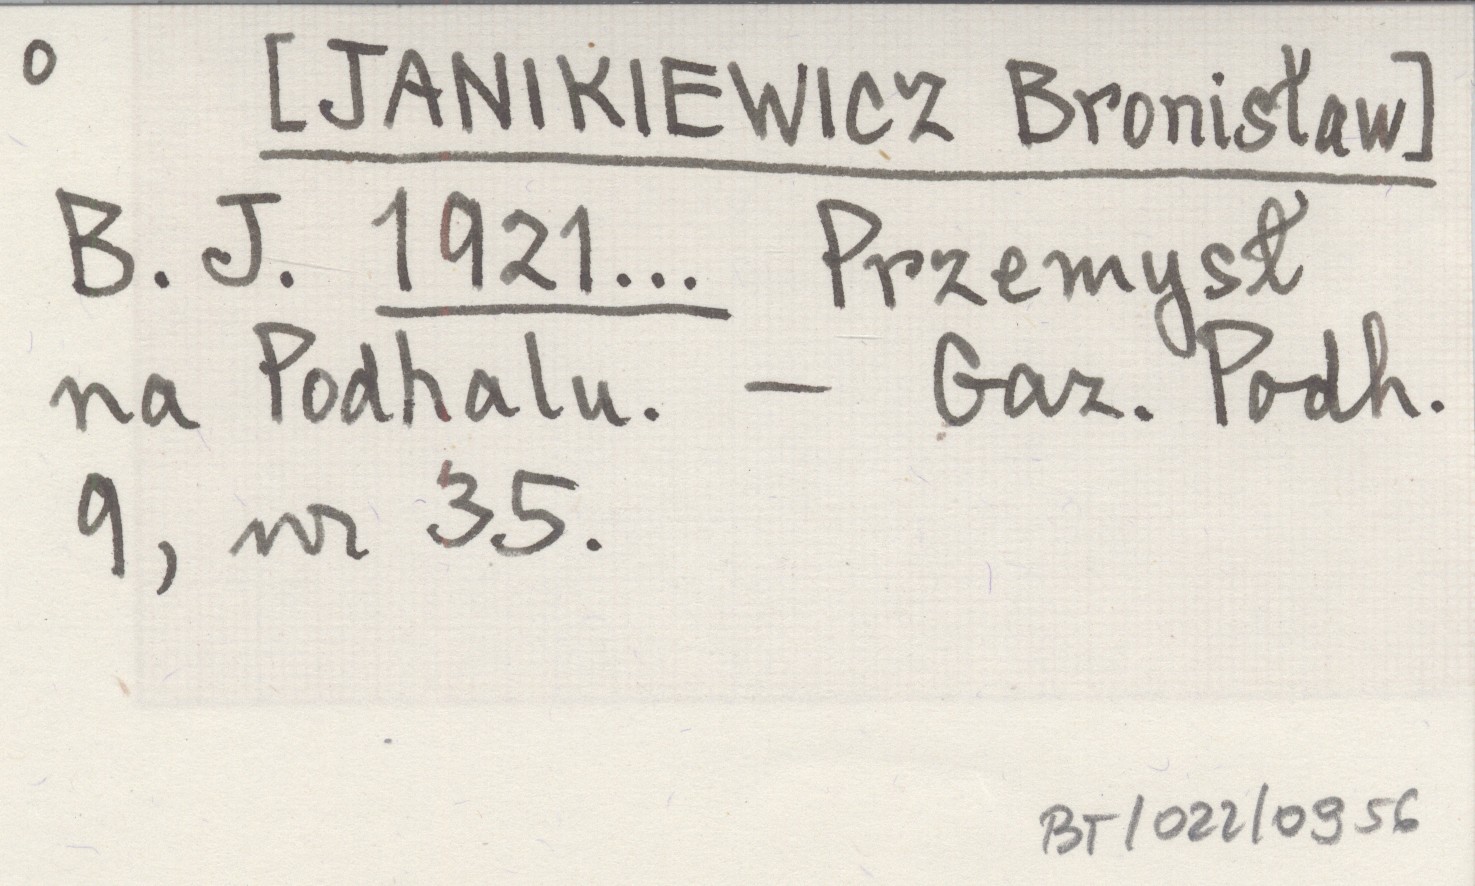 o [JANIKIEWICZ Bronisław]
B. J. 1921... Przemysł
na Podhalu. — Gaz. Podh.
9, nr 35.
BT/022/0956